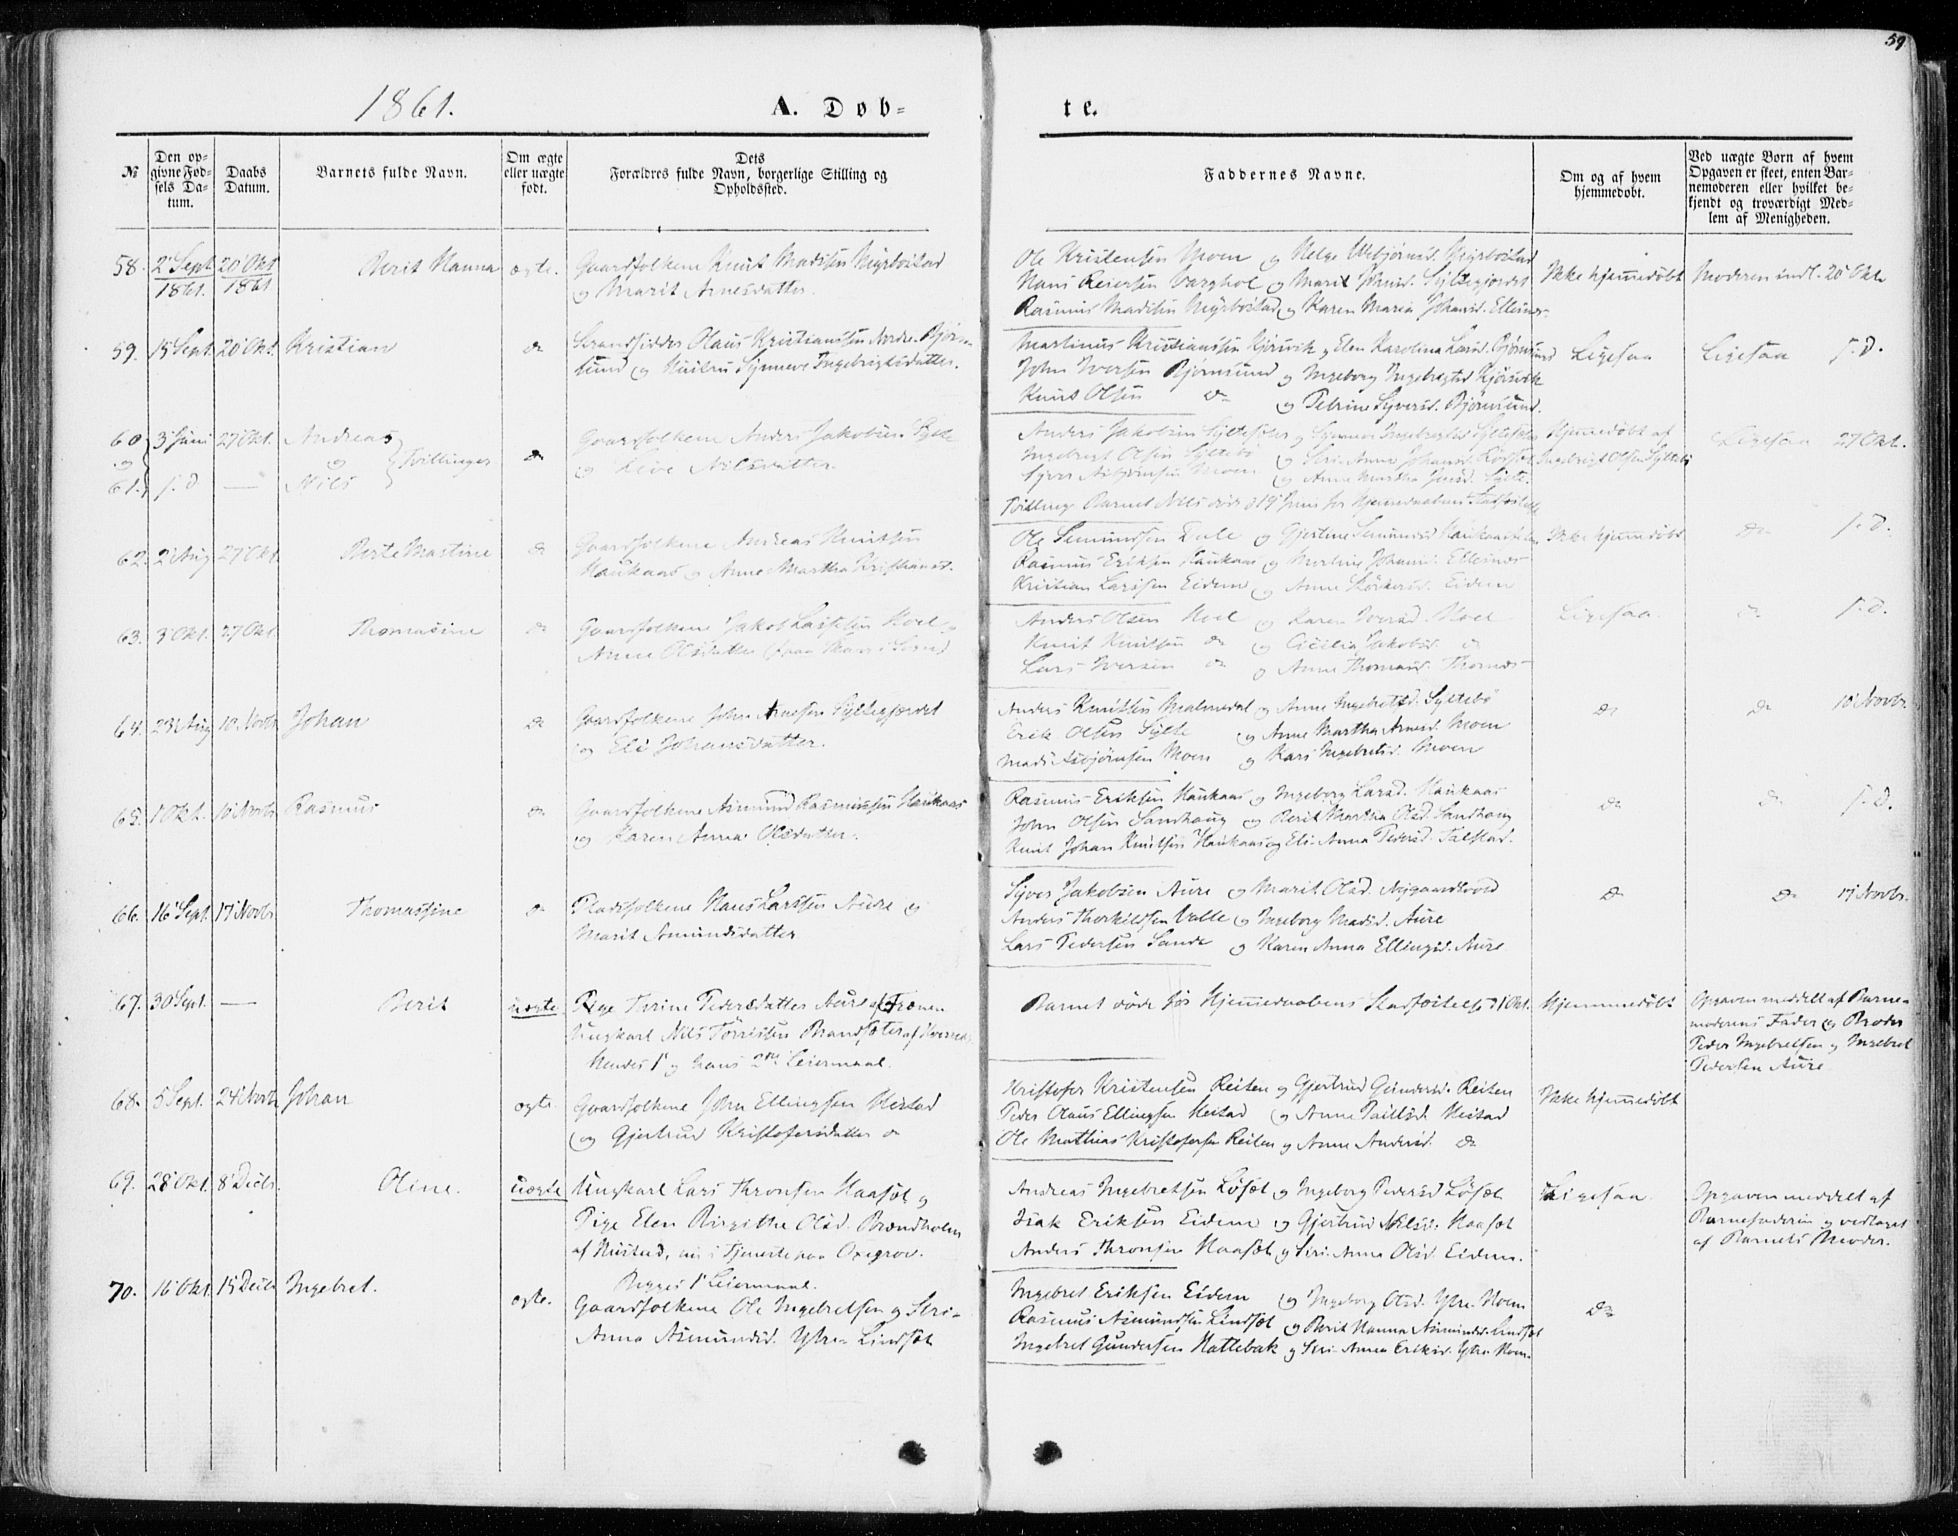 59
1861.
A. Døb-
te.
№
Den op-
givne Fød-
sels Da-
tum.
Daabs
Datum.
Barnets fulde Navn.
Om ægte
eller uægte
født.
Dets
Forældres fulde Navn, borgerlige Stilling og
Opholdssted.
Faddernes Navne.
Om og af hvem
hjemmedøbt.
Ved uægte Børn af hvem
Opgaven er skeet, enten Bar-
nemoderen eller hvilket be-
kjendt og troværdigt Med-
lem af Menigheden.
58. 2 Sept 1861. 20 Okt 1861 Berit Hanna ægte.
Gaardfolkene Knut Madsen Myrbostad
og Marit Arnesdatter.
Ole Kristensen Moen og Helge
Hans Reiersen Varghol og Marit
Rasmus Madsen Myrbostad og Karen Maria Johansd. Ellines-
Ikke hjemmedøbt
Moderen indl. 20 Okt.
59. 15 Sept. 20 Okt. Kristian do
Strandsidder Olaus Kristiansen Nordre Bjørn-
sund og Hustru Synneve Ingebrigtsdatter.
Martinus Kristiansen og Elen Karolina Larsd. Bjørnsund
John Iversen Bjørnsund og Ingeborg
Knut Olsen do og Petrine Syversd. Bjørnsund.
Ligesaa
Ligesaa f. d.
60 3 Juni 27 Okt. Andreas
og og Tvillinger do
61. f. d — Nils
Gaardfolkene Anders Jakobsen Sylte
og Live Nilsdatter.
Anders Jakobsen og Synneve
Ingebrigt Olsen Syltebø og Siri Anna
Moen og Anne Martha Sylte.
Tvilling Barnet Nils døde 14 Juni før Hjemmedaabens Stadfæstelse
Hjemmedøbt af
Ingebrigt Olsen Syltebø
Ligesaa 27 Okt.
62. 2 Aug 27 Okt. Berte Mastine do
Gaardfolkene Andreas Knutsen
Haukaas og Anne Martha Kristiansd.
Ole Dale og Gjertine
Rasmus Eriksen Haukaas og
Kristian Larssen Eidem og Anne Eidem
Ikke hjemmedøbt
do f. d.
63. 3 Okt. 27 Okt. Thomasine do
Gaardfolkene Jakob Lassesen Hoel og
Anne Olsdatter
Anders Olsen Hoel og Karen Iversd. Hoel
Knut Knutsen do og Cicilia Jakobsd. do
Lars Iversen do og Anne Thomasd.
Ligesaa
do f. d.
64. 23 Aug 10 Novbr Johan do
Gaardfolkene John Arnesen Syltegjærdet
og Eli Johansdatter.
Anders Knutsen Malmedal og Anne Ingebretsd. Syltebø
Erik Olsen Sylte og Anne Martha Arnesd. Moen
Mads Asbjørnsen Moen og Kari Ingebretsd. Moen
do
do 10 Novbr.
65. 1 Okt. 10 Novbr. Rasmus do
Gaardfolkene Asmund Rasmussen Haukaas
og Karen Anna Olsdatter.
Rasmus Eriksen Haukaas og Ingeborg Larsd. Haukaas
John Olsen Sandhaug og Berit Martha Olsd. Sandhaug
Knut Johan Knutsen Haukaas og Eli Anna Pedersd. Talstad.
do
do f. d.
66. 16 Sept. 17 Novbr. Thomassine do
Pladsfolkene Hans Larssen Aure og
Marit Amundsdatter
Syver Jakobsen Aure og Marit Olsd. Nygaardsvold
Anders Thorkildsen Valle og Ingeborg Madsd. Aure
Lars Pedersen Sande og Karen Anna Ellingsd. Aure
do
do 17 Novbr.
67. 30 Sept. — Berit uægte
Pige Perine Pedersdatter Aure af Frænen
Ungkarl Nils Torresen Brandsæter af
Hendes 1ste og hans 2det Leiermaal.
Barnet døde før Hjemmedaabens Stadfæstelse 21 Okt.
Hjemmedøbt
Opgaven meddelt af Barne-
moderens Fader og Broder
Peder Ingebretsen og Ingebret
Pedersen Aure
68. 5 Sept. 24 Novbr Johan ægte.
Gaardfolkene John Ellingsen Hestad
og Gjertrud Kristofersdatter do
Kristofer Kristensen Reiten og Gjertrud Gundersd. Reiten
Peder Olaus Ellingsen Hestad og Anne Hestad
Ole Mathias Kristofersen Reiten og Anne Andersd. do
Ikke hjemmedøbt
69. 28 Okt. 8 Decbr. Oline. uægte
Ungkarl Lars Thronsen Haasæt og
Pige Elen Birgithe Olsd. Brændholm
af Hustad, nu i Tjeneste paa
Begges 1ste Leiermaal.
Andreas Ingebretsen Løsæt og Ingeborg Pedersd. Løsæt
Isak Eriksen Eidem og Gjertrud Nilsd. Haasæt
Anders Thronsen Haasæt og Siri Anna Olsd. Eidem.
Ligesaa.
Opgaven meddelt af
Barnefaderen og vedtaget
af Barnets Moder.
70. 16 Okt. 15 Decbr Ingebret. ægte.
Gaardfolkene Ole Ingebretsen og Siri
Anna Asmundsd. Ytre Lindsæt
Ingebret Eriksen Eidem og Ingeborg Olsd. Ytre Hoem
Rasmus Asmundsen Lindsæt og Berit Hanna Asmundsd. Lindsæt
Ingebret Gundersen Hattebak og Siri Anna Eriksd. Ytre Hoem
do